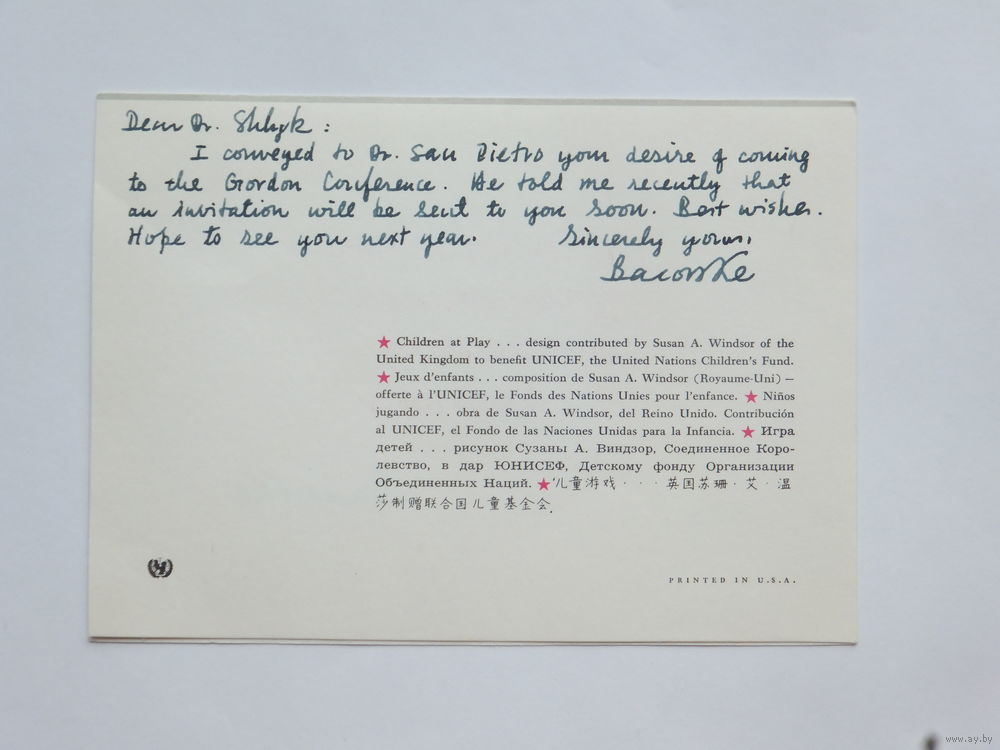 Dear Dr. Shlyk :
I conveyed to Dr. San Pietro your desire of coming
to the Gordon Conference. He told me recently that
an invitation will be sent to you soon. Best wishes.
Hope to see you next year. Sincerely yours,
★ Children at Play . . . design contributed by Susan A. Windsor of the
United Kingdom to benefit UNICEF, the United Nations Children's Fund.
★ Jeux d'enfants . . . composition de Susan A. Windsor (Royaume-Uni) —
offerte à l'UNICEF, le Fonds des Nations Unies pour l'enfance. ★ Niños
jugando . . . obra de Susan A. Windsor, del Reino Unido. Contribución
al UNICEF, el Fondo de las Naciones Unidas para la Infancia. ★ Игра
детей . . . рисунок Сузаны А. Виндзор, Соединенное Коро-
левство, в дар ЮНИСЕФ, Детскому фонду Организации
Объединенных Наций. ★ 儿童游戏 · · · 英国苏珊 · 艾 · 温
莎制赠联合国儿童基金会.
PRINTED IN U.S.A.
www.ay.by